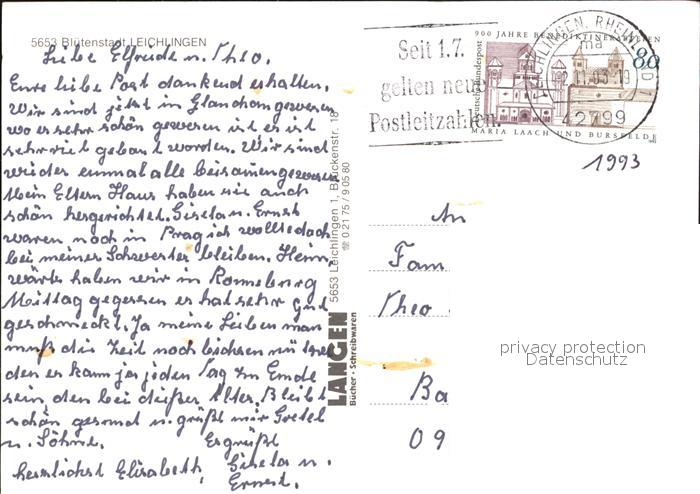 5653 Blütenstadt LEICHLINGEN
Liebe Elfriede u. Theo.
Eure liebe Post dankend erhalten.
Wir sind jetzt in Glauchau gewesen
wo es sehr schön gewesen ist es ist
sehr viel gebaut worden. Wir sind
wieder einmal alle beisamen gewesen
Mein Eltern Haus haben sie auch
schön hergerichtet. Gisela u. Ernst
waren noch in Prag ich wollte doch
bei meiner Schwester bleiben. Heim
wärts haben wir in Ronneburg
Mittag gegessen es hat sehr gut
geschmeckt. Ja meine Lieben man
muß die Zeit noch bischen nützen
den es kann ja jeden Tag zu Ende
sein den bei dießer Alter. Bleibt
schön gesund u. grüßt mir Gretel
u. Söhne. Es grüßt
herzlichst Elisabeth, Gisela u.
Ernst.
LANGEN
Bücher · Schreibwaren
5653 Leichlingen 1, Brückenstr. 18
☎ 0 21 75 / 9 05 80
Seit 1.7.
gelten neue
Postleitzahlen.
900 JAHRE BENEDIKTINERABTEIEN
Deutsche Bundespost
80
MARIA LAACH UND BURSFELDE
LEICHLINGEN, RHEINLAND
ma
42799
1993
An
Fam
Theo
Ba
09
privacy protection
Datenschutz